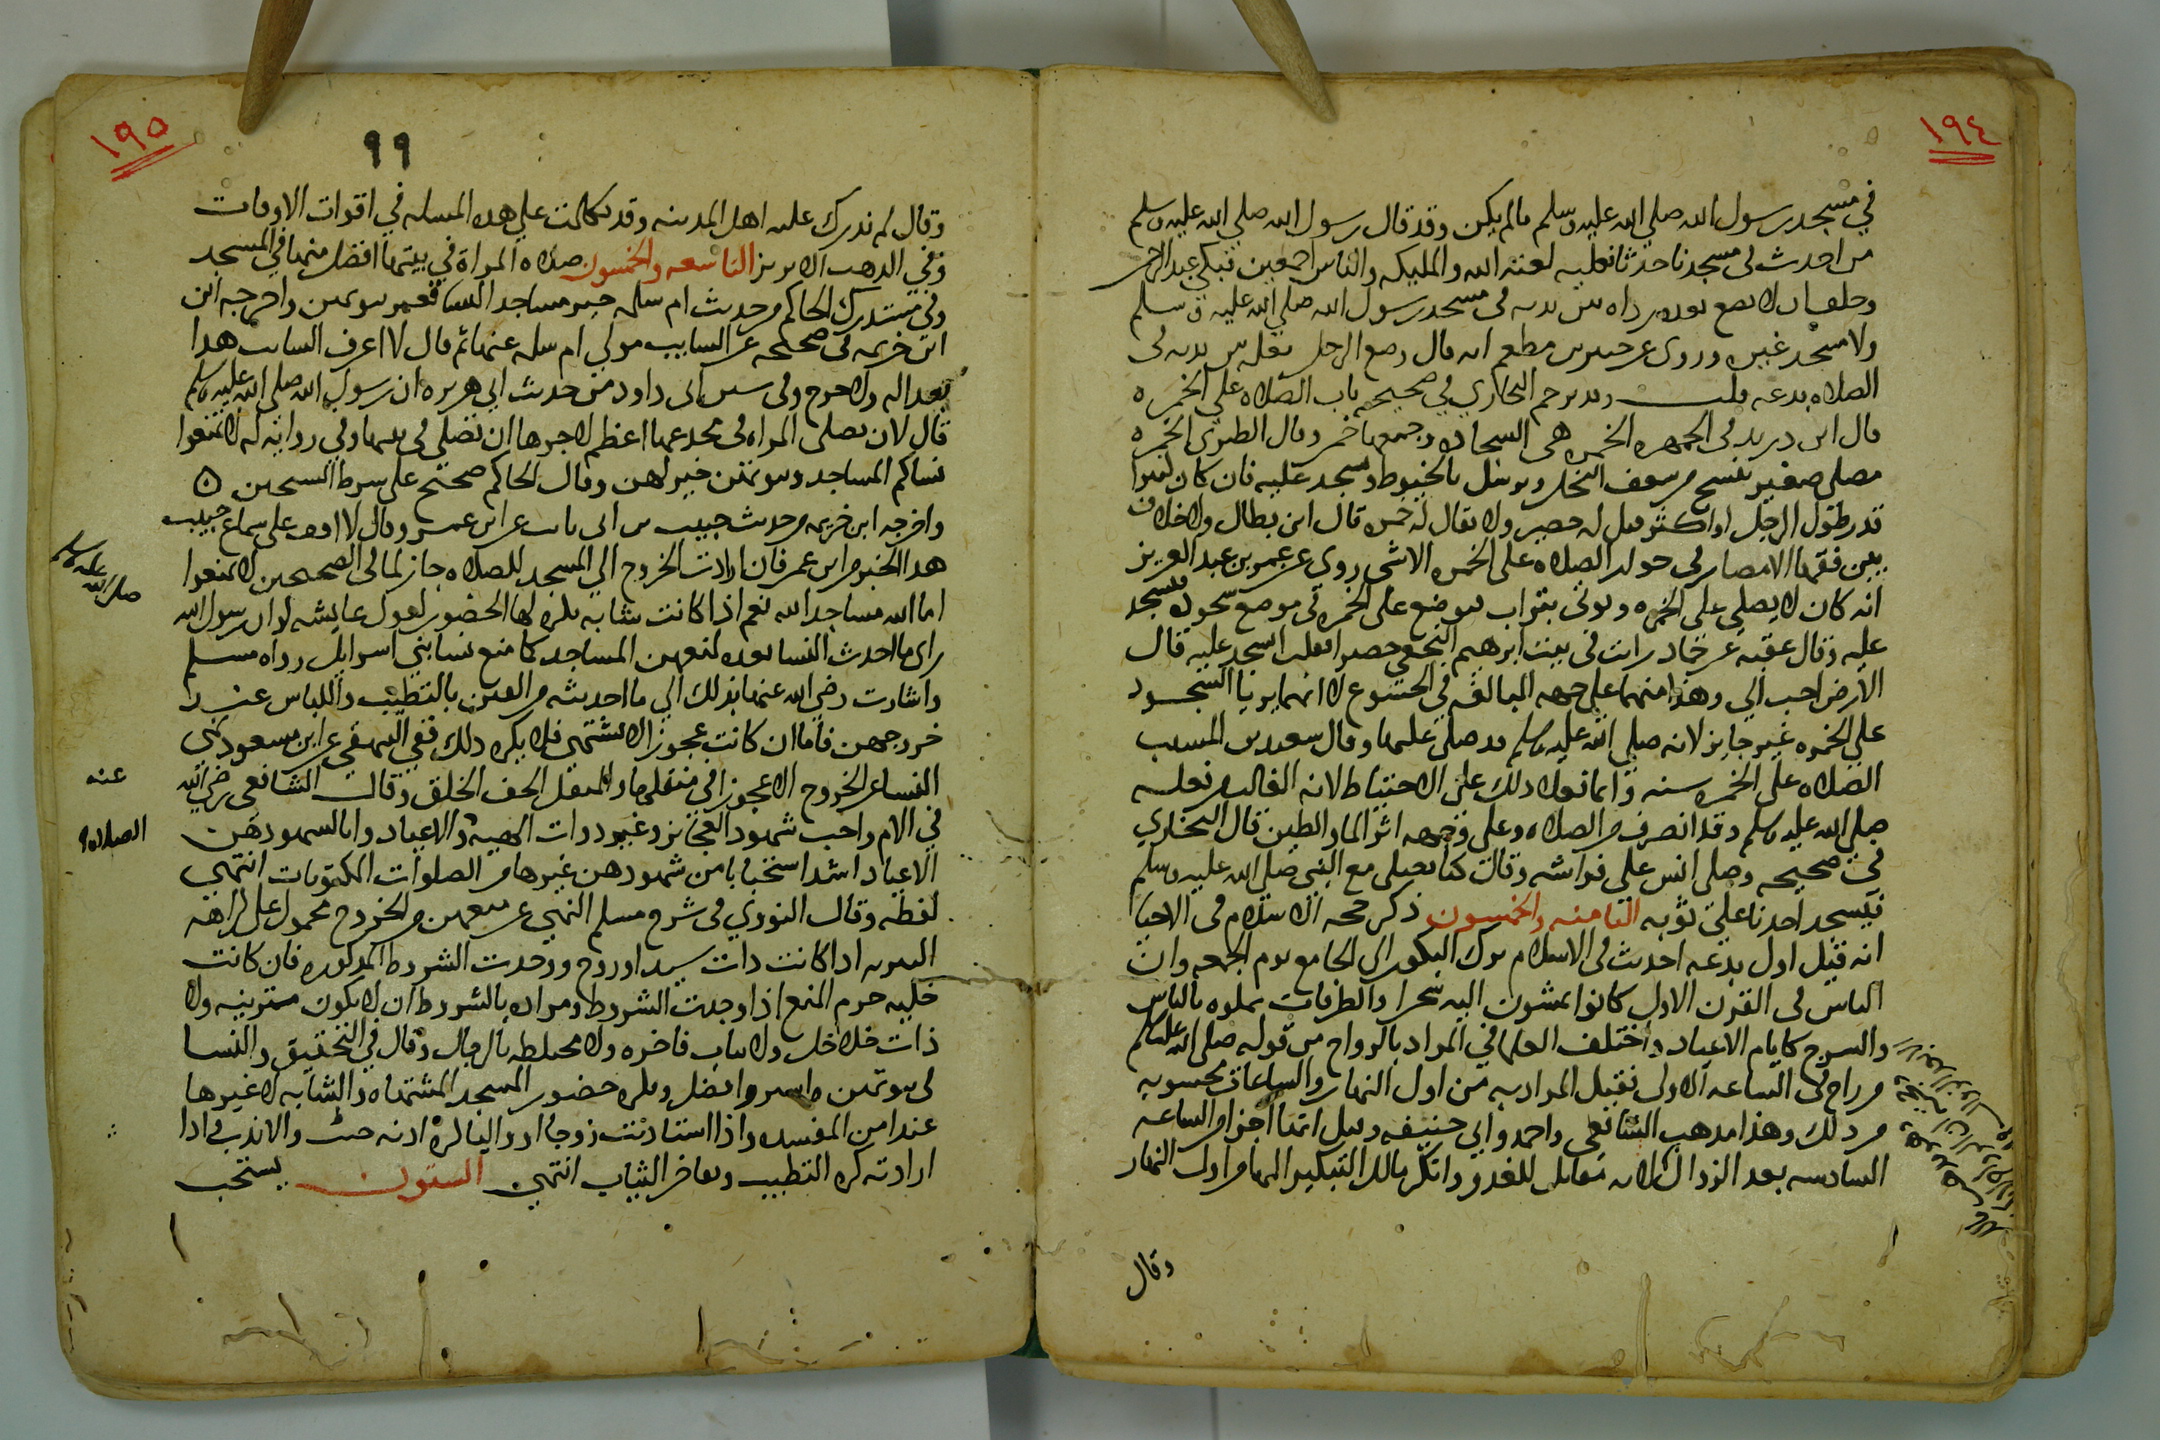 ١٩٤
في مسجد رسول الله صلي الله عليه وسلم مالم يكن وقد قال رسول الله صلي الله عليه وسلم
من احدث في مسجدنا حدثا فعليه لعنة الله والمليكه والناس اجمعين فبكي عبد الرحمن
وحلف ان لا يضع بعده رداه بين يديه في مسجد رسول الله صلي الله عليه وسلم
ولا مسجد غيره وروى عن جبير بن مطعم انه قال وضع الرجل نعله بين يديه في
الصلاه بدعه قلت وقد ترجم البخاري في صحيحه باب الصلاه علي الخمره
قال ابن دريد في الجمهره الخمره هي السجاده وجمعها خمر وقال الطبري الخمره
مصلي صغير ينسج من سعف النخل ويرمل بالخيوط ويسجد عليه فان كان كبيرا
قدر طول الرجل او اكثر قيل له حصير ولا يقال له خمره قال ابن بطال ولا خلاف
بين فقها الامصار في جواز الصلاه على الخمره الا شي روي عن عمر بن عبد العزيز
انه كان لا يصلي على الخمره ويوتى بتراب فيوضع على الخمره في موضع سجوده فيسجد
عليه وقال عقبه عن حماد رايت في بيت ابرهيم النخعي حصيرا فقلت اسجد عليه قال
الارض احب الي وهذا منهما علي جهه المبالغه في الخشوع لا انهما يريا السجود
علي الخمره غير جايز لانه صلي الله عليه وسلم قد صلي عليها وقال سعيد بن المسيب
الصلاه على الخمره سنه وانما فعلا ذلك على الاحتياط لانه الغالب من فعله
صلي الله عليه وسلم وقد انصرف من الصلاه وعلي وجهه اثر الما والطين قال البخاري
في صحيحه وصلي انس علي فراشه وقال كنا نصلي مع النبي صلي الله عليه وسلم
فيسجد احدنا علي ثوبه الثامنه والخمسون ذكر حجه الاسلام في الاحيا
انه قيل اول بدعه احدث في الاسلام ترك البكور الي الجامع يوم الجمعه وان
الناس في القرن الاول كانوا يمشون اليه سحرا والطرقات مملوه بالناس
والسرج كايام الاعياد واختلف العلما في المراد بالرواح من قوله صلي الله عليه وسلم
من راح في الساعه الاولى فقيل المراد به من اول النهار والساعات محسوبه
من ذلك وهذا مذهب الشافعي واحمد وابي حنيفه وقيل انها اجزا من الساعه
السادسه بعد الزوال لانه مقابل للغدو وانكر مالك التبكير اليها من اول النهار
وقال
١٩٥
٩٩
وقال لم ندرك عليه اهل المدينه وقد تكلمت علي هذه المسله في اقوات الاوقات
وفي الذهب الابريز التاسعه والخمسون صلاه المراه في بيتها افضل منها في المسجد
وفي مستدرك الحاكم من حديث ام سلمه خير مساجد النسا قعر بيوتهن واخرجه ابن
ابن خزيمه في صحيحه عن السايب مولي ام سلمه عنها ثم قال لا اعرف السايب هذا
بعداله ولا جرح وفي سنن ابي داود من حديث ابي هريره ان رسول الله صلي الله عليه وسلم
قال لان تصلى المراه في مخدعها اعظم لاجرها ان تصلي في بيتها وفي روايه له لا تمنعوا
نساكم المساجد وبيوتهن خير لهن وقال الحاكم صحيح علي شرط الشيخين ه
واخرجه ابن خزيمه من حديث حبيب بن ابي ثابت عن ابن عمر وقال لا اقف على سماع حبيب
هذا الخبر من ابن عمر فان ارادت الخروج الي المسجد للصلاه جاز لما في الصحيحين لا تمنعوا
اما الله مساجد الله نعم اذا كانت شابه يكره لها الحضور لقول عايشه لو ان رسول الله
صلي الله عليه وسلم
راى ما احدث النسا بعده لمنعهن المساجد كما منع نسا بني اسرايل رواه مسلم
واشارت رضي الله عنها بذلك الي ما احدثه من الفتن بالتطيب واللباس عند
خروجهن فاما ان كانت عجوزا لا تشتهي فلا يكره ذلك ففي البيهقي عن ابن مسعود نهى
النسا عن الخروج الا عجوزا في منقليها والمنقل الخف الخلق وقال الشافعي رضي الله
عنه
في الام واحب شهود العجايز وغير ذوات الهيئه والاعياد وانا لشهودهن
الصلاه
الاعياد اشد استحبابا من شهودهن غيرها من الصلوات المكتوبات انتهي
لفظه وقال النووي في شرح مسلم النهي عن منعهن من الخروج محمول على كراهه
التنزيه اذا كانت ذات سيد او زوج ووجدت الشروط المذكوره فان كانت
خليه حرم المنع اذا وجدت الشروط ومراده بالشروط ان لا يكون متزينه ولا
ذات خلاخل ولا ثياب فاخره ولا مختلطه بالرجال وقال في التحقيق والنسا
في بيوتهن واستر وافضل ويكره حضور المسجد المشتهاه والشابه لا غيرها
عند امن المفسده واذا استاذنت زوجا او وليا كره اذنه حيث والا ندب فاذا
ارادته كره التطييب وفاخر الثياب انتهي الستون يستحب